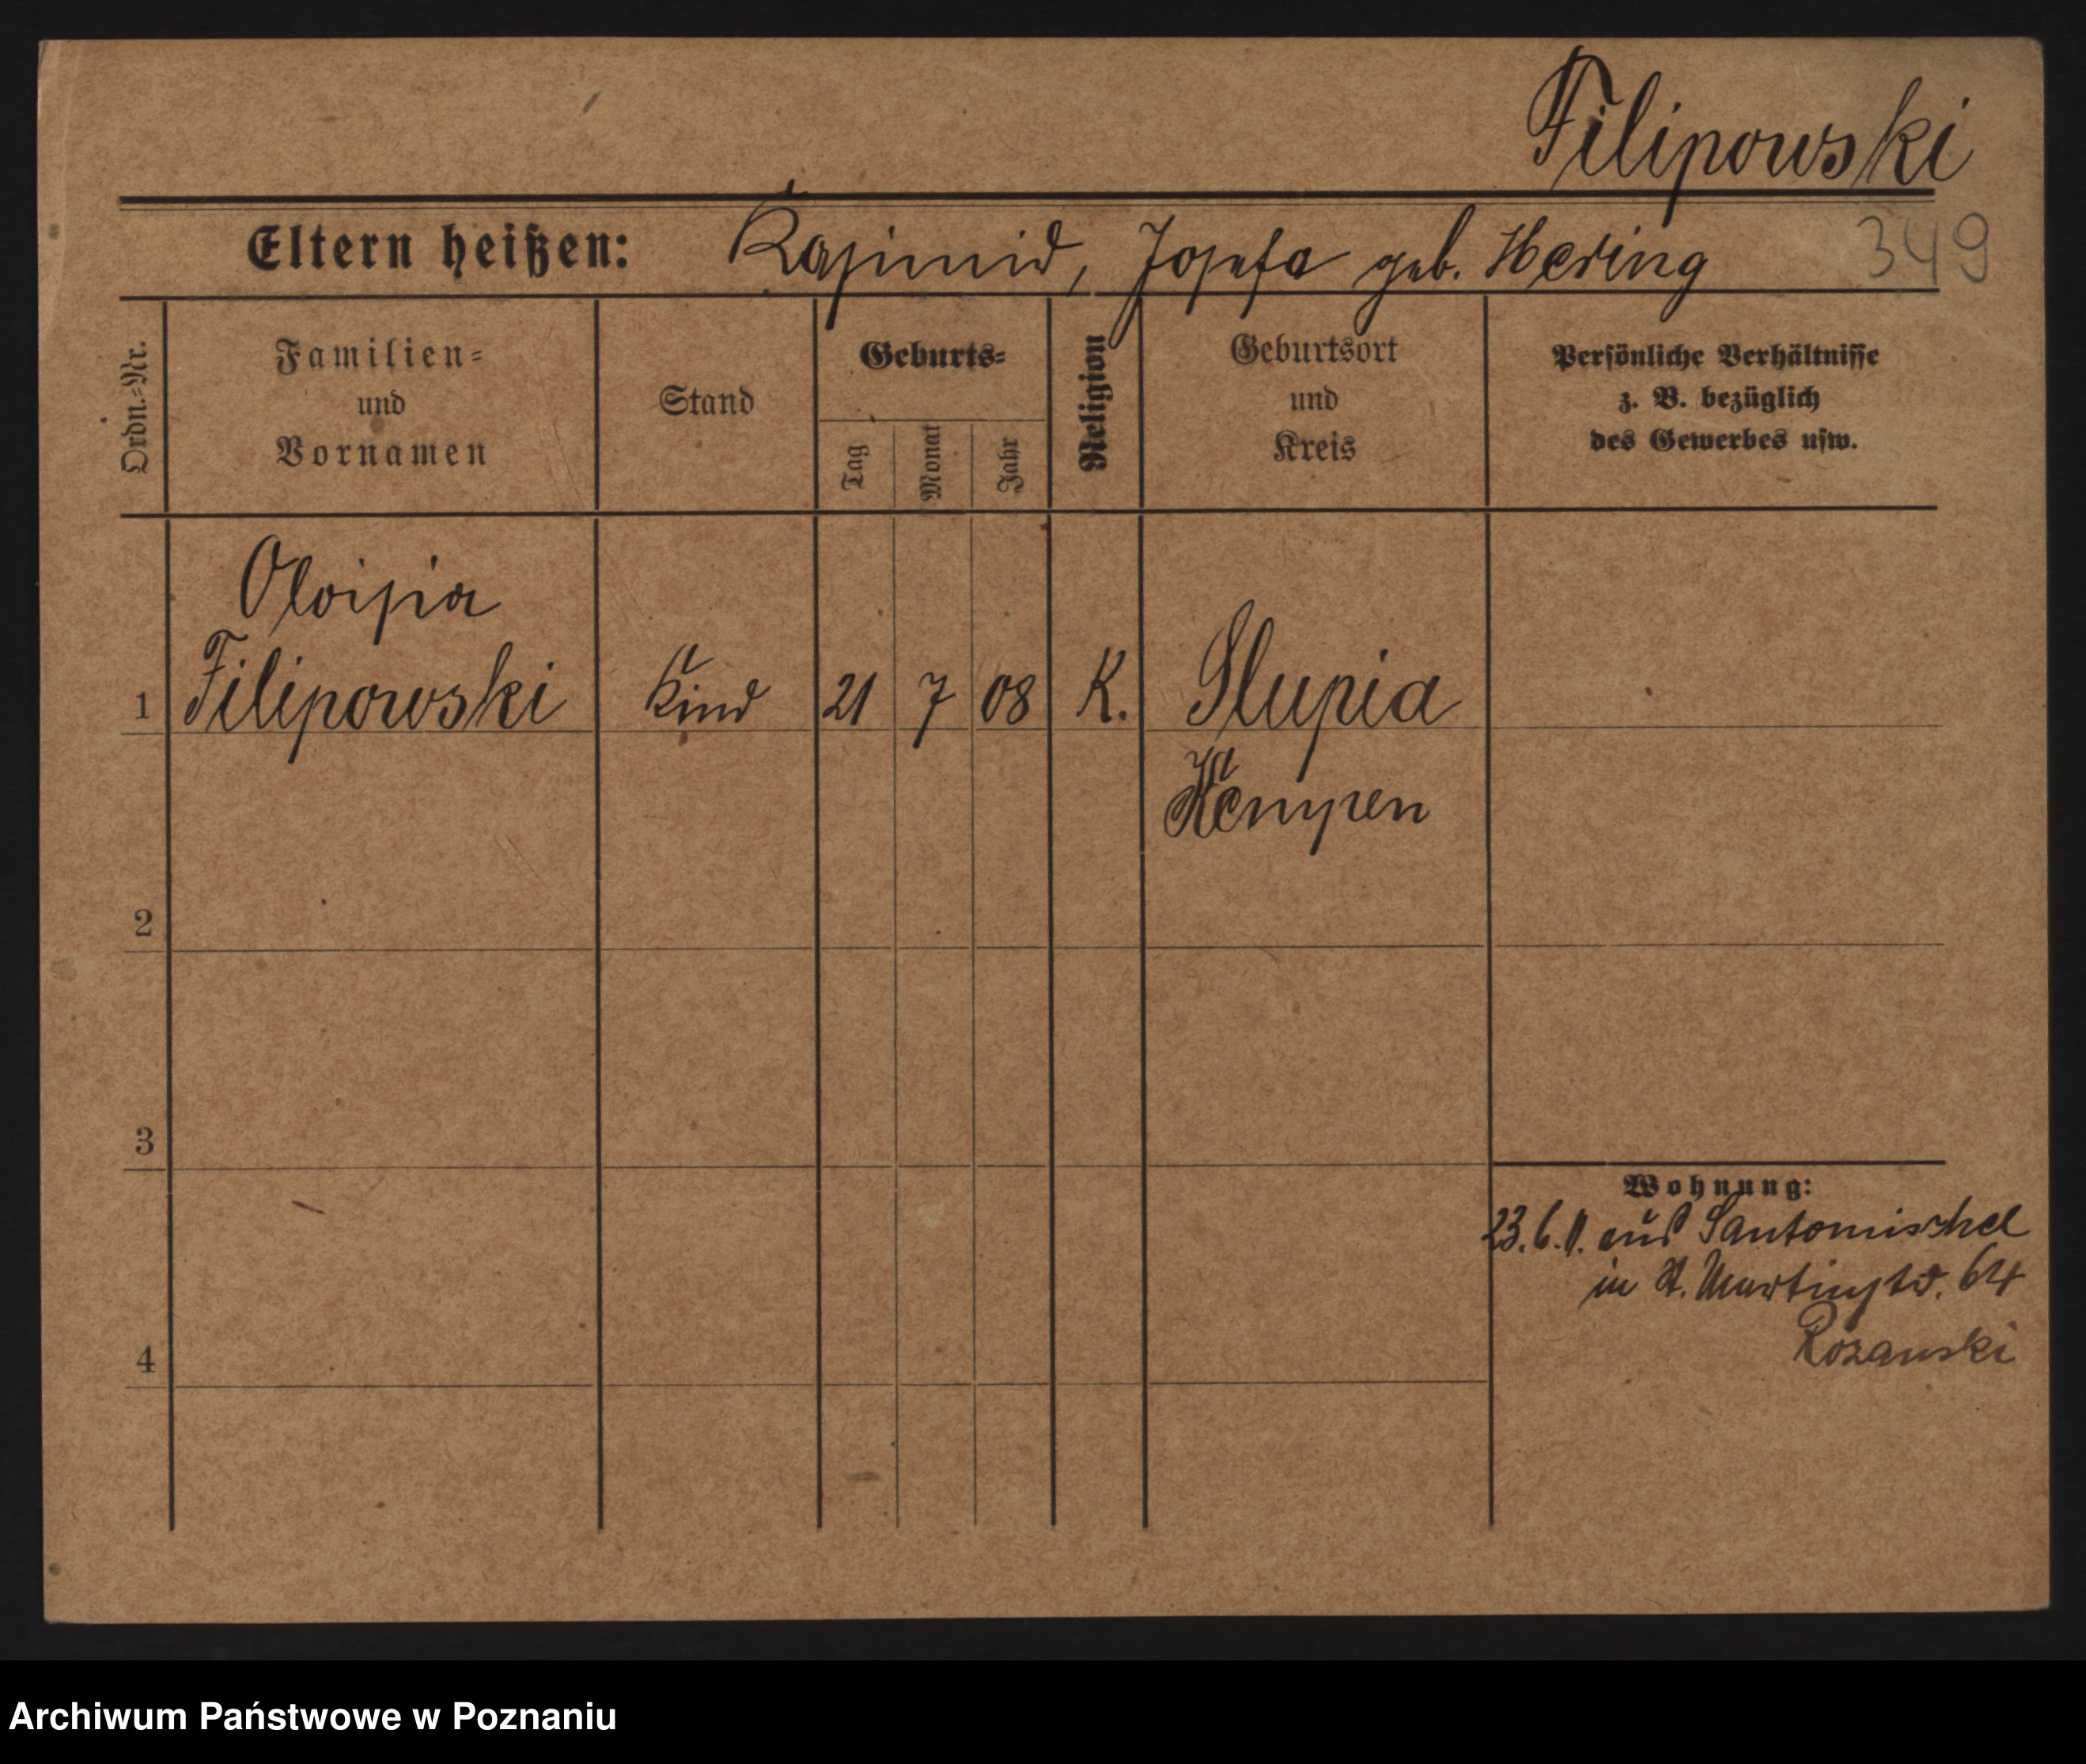 Filipowski
Eltern heißen: Kasimir, Josefa geb. Hering
349
Ordn.=Nr.
Familien=
und
Vornamen
Stand
Geburts=
Tag
Monat
Jahr
Religion
Geburtsort
und
Kreis
Persönliche Verhältnisse
z. B. bezüglich
des Gewerbes usw.
Aloisia
1 Filipowski Kind 21 7 08 K. Slupia
Kempen
2
3
4
Wohnung:
23.6.11. aus Santomischel
in St. Martinstr. 64
Rozanski
Archiwum Państwowe w Poznaniu